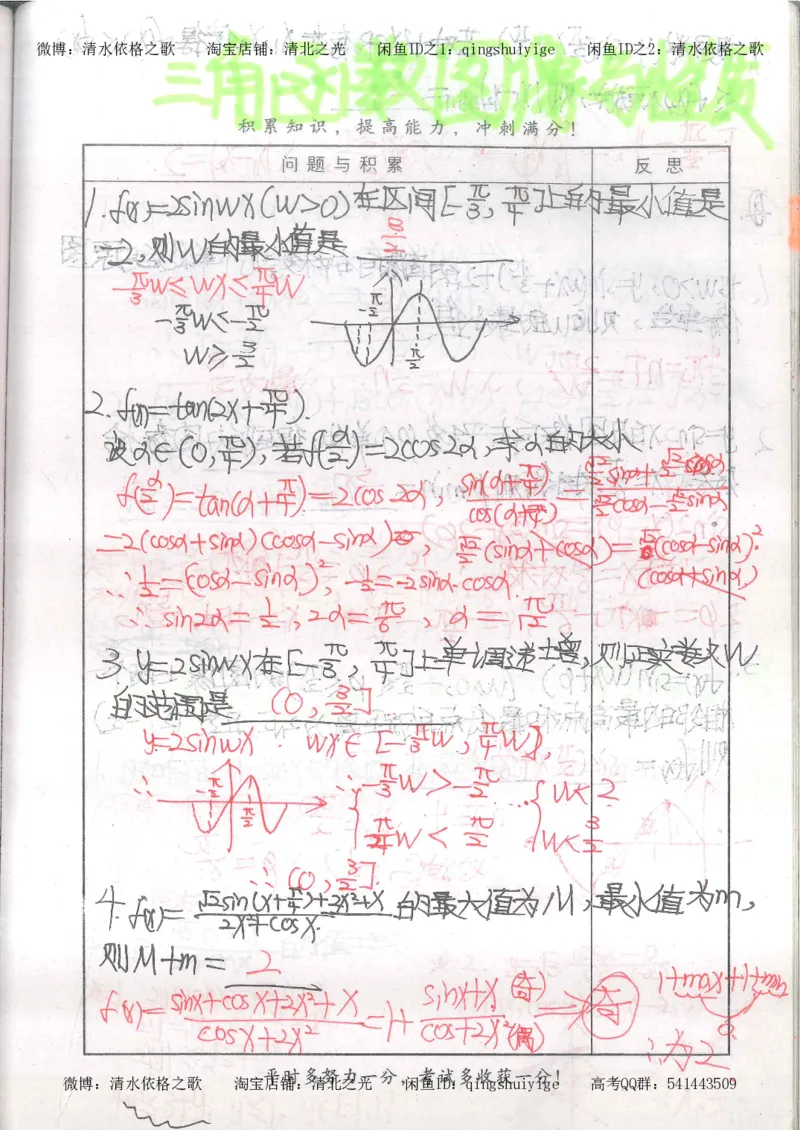 微博：清水依格之歌 淘宝店铺：清北之光 闲鱼ID之1：qingshuiyige 闲鱼ID之2：清水依格之歌
三角函数图像与性质
积累知识，提高能力，冲刺满分！
问题与积累 反思
1. f(x)=2sinwx(w>0)在区间[-π/3, π/4]上的最小值是
-2,则w的最小值是 3/2
-π/3w≤wx≤π/4w
-π/3w≤-π/2
w≥3/2
-π/2
π/2
2. f(x)=tan(2x+π/4).
设α∈(0,π/4),若f(α/2)=2cos2α,求α的大小
f(α/2)=tan(α+π/4)=2cos2α, sin(α+π/4)/cos(α+π/4) = (√2/2sinα+√2/2cosα)/(√2/2cosα-√2/2sinα)
=2(cosα+sinα)(cosα-sinα), √2/2(sinα+cosα)=√2(cosα-sinα)²·
(cosα+sinα)
∴1/2=(cosα-sinα)², -1/2=-2sinα·cosα.
∴sin2α=1/2, 2α=π/6, α=π/12
3. y=2sinwx在[-π/3, π/4]上单调递增,则正实数w
的范围是 (0,3/2]
y=2sinwx. wx∈[-π/3w, π/4w],
∴
-π/2
π/2
∴{-π/3w>-π/2 ∴{w<2
π/4w<π/2 w<3/2
∴(0,3/2]
4. f(x)=(√2sin(x+π/4)+2x²+x)/(2x²+cosx)的最大值为M,最小值为m,
则M+m=2
f(x)=(sinx+cosx+2x²+x)/(cosx+2x²)=1+(sinx+x)/(cosx+2x²) (奇)/(偶) ⇒奇 1+max+1+min
0
∴为2
平时多努力一分，考试多收获一分！
微博：清水依格之歌 淘宝店铺：清北之光 闲鱼ID：qingshuiyige 高考QQ群：541443509